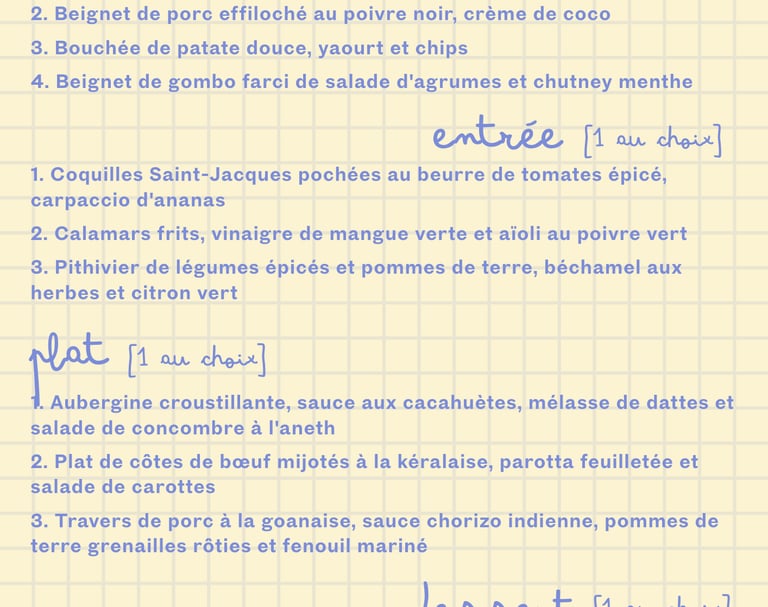 2. Beignet de porc effiloché au poivre noir, crème de coco
3. Bouchée de patate douce, yaourt et chips
4. Beignet de gombo farci de salade d'agrumes et chutney menthe
entrée [1 au choix]
1. Coquilles Saint-Jacques pochées au beurre de tomates épicé,
carpaccio d'ananas
2. Calamars frits, vinaigre de mangue verte et aïoli au poivre vert
3. Pithivier de légumes épicés et pommes de terre, béchamel aux
herbes et citron vert
plat [1 au choix]
1. Aubergine croustillante, sauce aux cacahuètes, mélasse de dattes et
salade de concombre à l'aneth
2. Plat de côtes de bœuf mijotés à la kéralaise, parotta feuilletée et
salade de carottes
3. Travers de porc à la goanaise, sauce chorizo indienne, pommes de
terre grenailles rôties et fenouil mariné
[1 au choix]